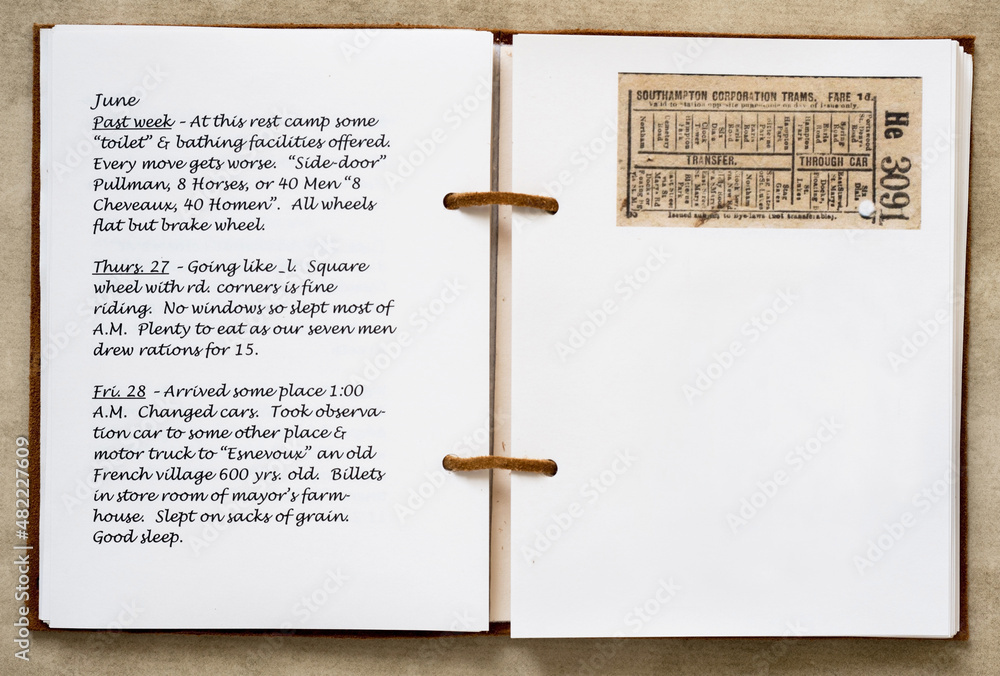 June
Past week - At this rest camp some
"toilet" & bathing facilities offered.
Every move gets worse. "Side-door"
Pullman, 8 Horses, or 40 Men "8
Cheveaux, 40 Homen". All wheels
flat but brake wheel.
Thurs. 27 - Going like _l. Square
wheel with rd. corners is fine
riding. No windows so slept most of
A.M. Plenty to eat as our seven men
drew rations for 15.
Fri. 28 - Arrived some place 1:00
A.M. Changed cars. Took observa-
tion car to some other place &
motor truck to "Esnevoux" an old
French village 600 yrs. old. Billets
in store room of mayor's farm-
house. Slept on sacks of grain.
Good sleep.
SOUTHAMPTON CORPORATION TRAMS. FARE 1d.
TRANSFER. THROUGH CAR
Issued subject to Bye-laws (not transferable).
He 3091
Adobe Stock | #482227609